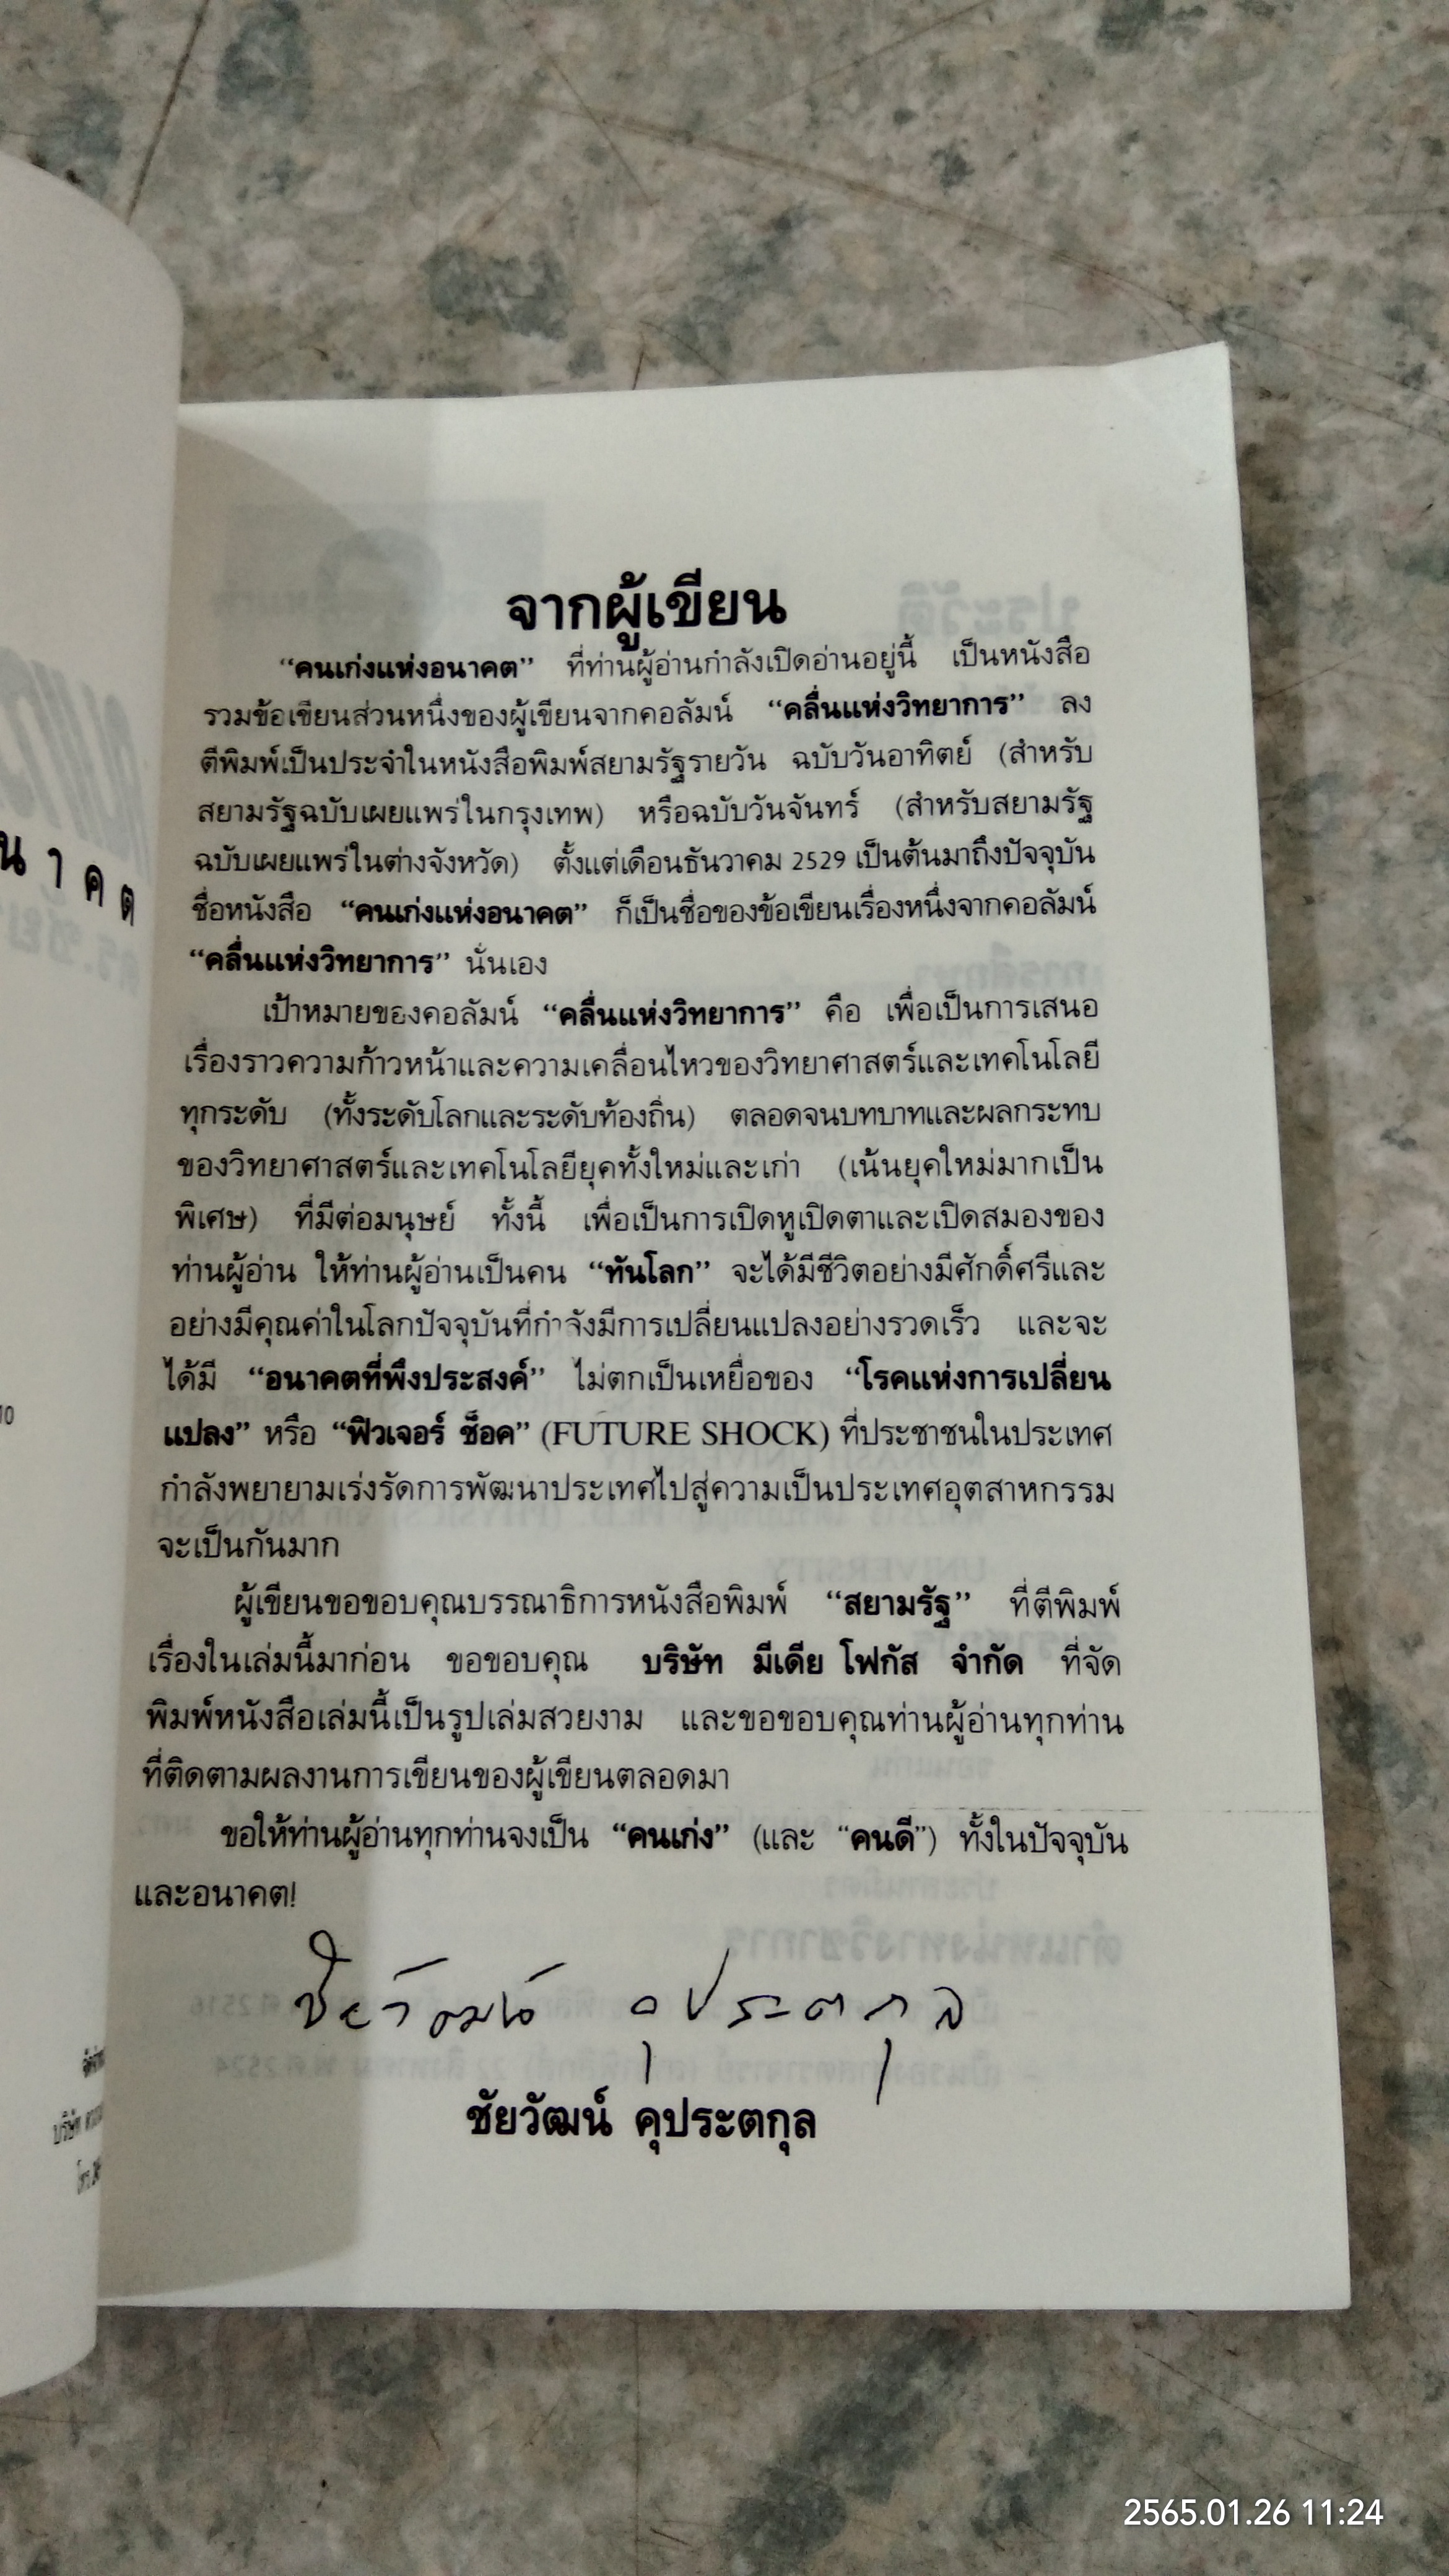 จากผู้เขียน
“คนเก่งแห่งอนาคต” ที่ท่านผู้อ่านกำลังเปิดอ่านอยู่นี้ เป็นหนังสือ
รวมข้อเขียนส่วนหนึ่งของผู้เขียนจากคอลัมน์ “คลื่นแห่งวิทยาการ” ลง
ตีพิมพ์เป็นประจำในหนังสือพิมพ์สยามรัฐรายวัน ฉบับวันอาทิตย์ (สำหรับ
สยามรัฐฉบับเผยแพร่ในกรุงเทพ) หรือฉบับวันจันทร์ (สำหรับสยามรัฐ
ฉบับเผยแพร่ในต่างจังหวัด) ตั้งแต่เดือนธันวาคม 2529 เป็นต้นมาถึงปัจจุบัน
ชื่อหนังสือ “คนเก่งแห่งอนาคต” ก็เป็นชื่อของข้อเขียนเรื่องหนึ่งจากคอลัมน์
“คลื่นแห่งวิทยาการ” นั่นเอง
เป้าหมายของคอลัมน์ “คลื่นแห่งวิทยาการ” คือ เพื่อเป็นการเสนอ
เรื่องราวความก้าวหน้าและความเคลื่อนไหวของวิทยาศาสตร์และเทคโนโลยี
ทุกระดับ (ทั้งระดับโลกและระดับท้องถิ่น) ตลอดจนบทบาทและผลกระทบ
ของวิทยาศาสตร์และเทคโนโลยียุคทั้งใหม่และเก่า (เน้นยุคใหม่มากเป็น
พิเศษ) ที่มีต่อมนุษย์ ทั้งนี้ เพื่อเป็นการเปิดหูเปิดตาและเปิดสมองของ
ท่านผู้อ่าน ให้ท่านผู้อ่านเป็นคน “ทันโลก” จะได้มีชีวิตอย่างมีศักดิ์ศรีและ
อย่างมีคุณค่าในโลกปัจจุบันที่กำลังมีการเปลี่ยนแปลงอย่างรวดเร็ว และจะ
ได้มี “อนาคตที่พึงประสงค์” ไม่ตกเป็นเหยื่อของ “โรคแห่งการเปลี่ยน
แปลง” หรือ “ฟิวเจอร์ ช็อค” (FUTURE SHOCK) ที่ประชาชนในประเทศ
กำลังพยายามเร่งรัดการพัฒนาประเทศไปสู่ความเป็นประเทศอุตสาหกรรม
จะเป็นกันมาก
ผู้เขียนขอขอบคุณบรรณาธิการหนังสือพิมพ์ “สยามรัฐ” ที่ตีพิมพ์
เรื่องในเล่มนี้มาก่อน ขอขอบคุณ บริษัท มีเดีย โฟกัส จำกัด ที่จัด
พิมพ์หนังสือเล่มนี้เป็นรูปเล่มสวยงาม และขอขอบคุณท่านผู้อ่านทุกท่าน
ที่ติดตามผลงานการเขียนของผู้เขียนตลอดมา
ขอให้ท่านผู้อ่านทุกท่านจงเป็น “คนเก่ง” (และ “คนดี”) ทั้งในปัจจุบัน
และอนาคต!
ชัยวัฒน์ คุประตกุล
ชัยวัฒน์ คุประตกุล
2565.01.26 11:24